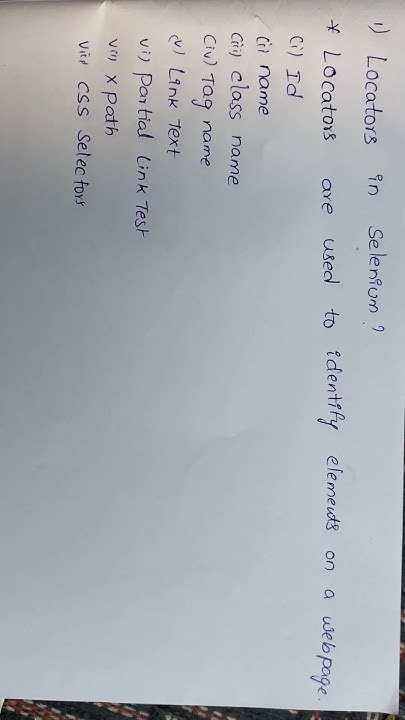 1) Locators in Selenium?
* Locators are used to identify elements on a webpage.
(i) Id
(ii) name
(iii) class name
(iv) Tag name
(v) Link Text
vi) Partial Link Test
vii) x path
viii) CSS Selectors